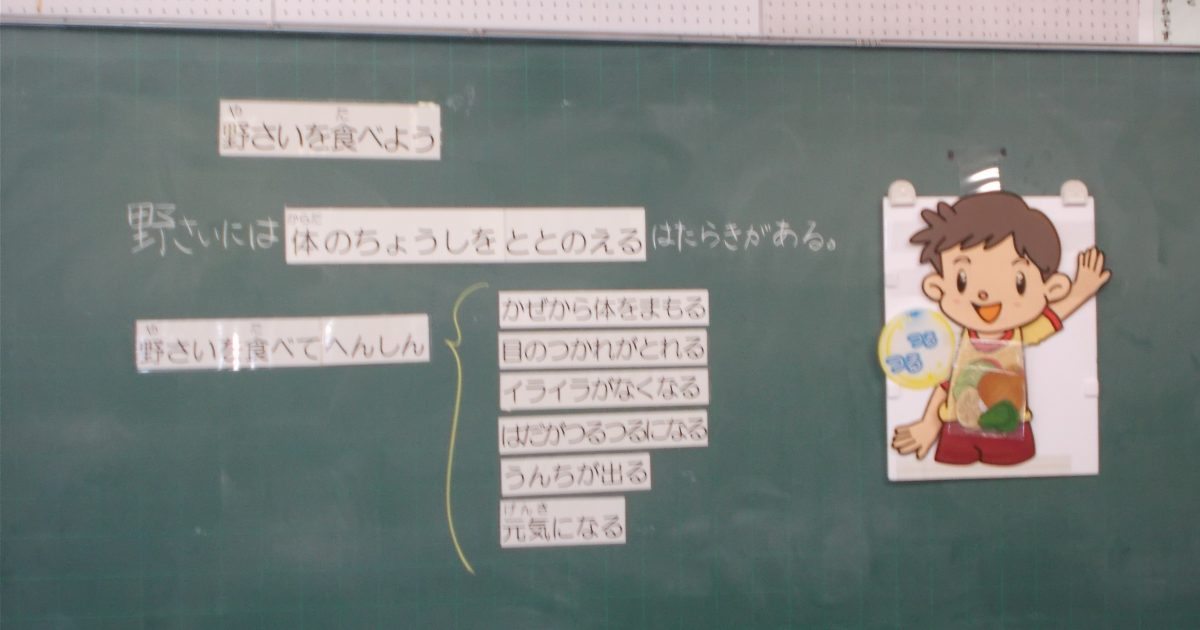 野さいを食べよう
野さいには体のちょうしをととのえるはたらきがある。
野さいを食べてへんしん
かぜから体をまもる
目のつかれがとれる
イライラがなくなる
はだがつるつるになる
うんちが出る
元気になる
つる
つる